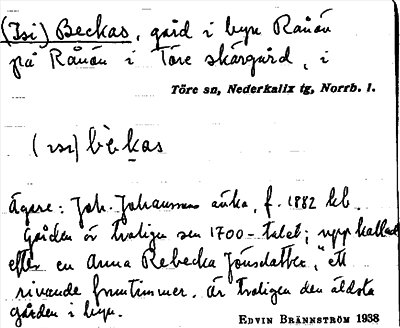 (Isi) Beckas, gård i byn Rånön
på Rånön i Töre skärgård, i
Töre sn, Nederkalix tg, Norrb. l.
(ɪsi) bèkas
Ägare: Joh. Johanssons änka, f. 1882 hb.
Gården är troligen sen 1700-talet; uppkallad
efter en Anna Rebecka Jönsdatter, "ett
rivande fruntimmer. Är troligen den äldsta
gården i byn.
EDVIN BRÄNNSTRÖM 1938